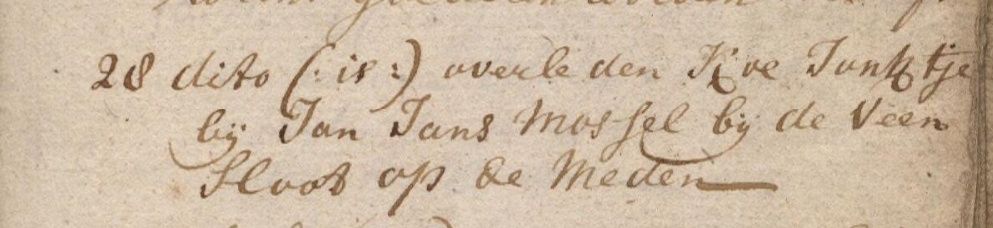 28 dito (: is :) overle den Kroe Jantje
bij Jan Jans Mossel bij de Veen
Sloot op de Meden